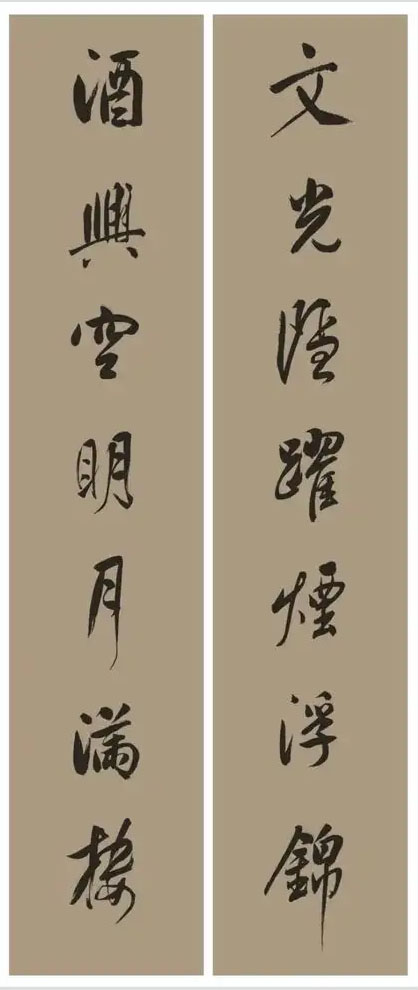 文光隱躍煙浮錦
酒興空明月滿樓